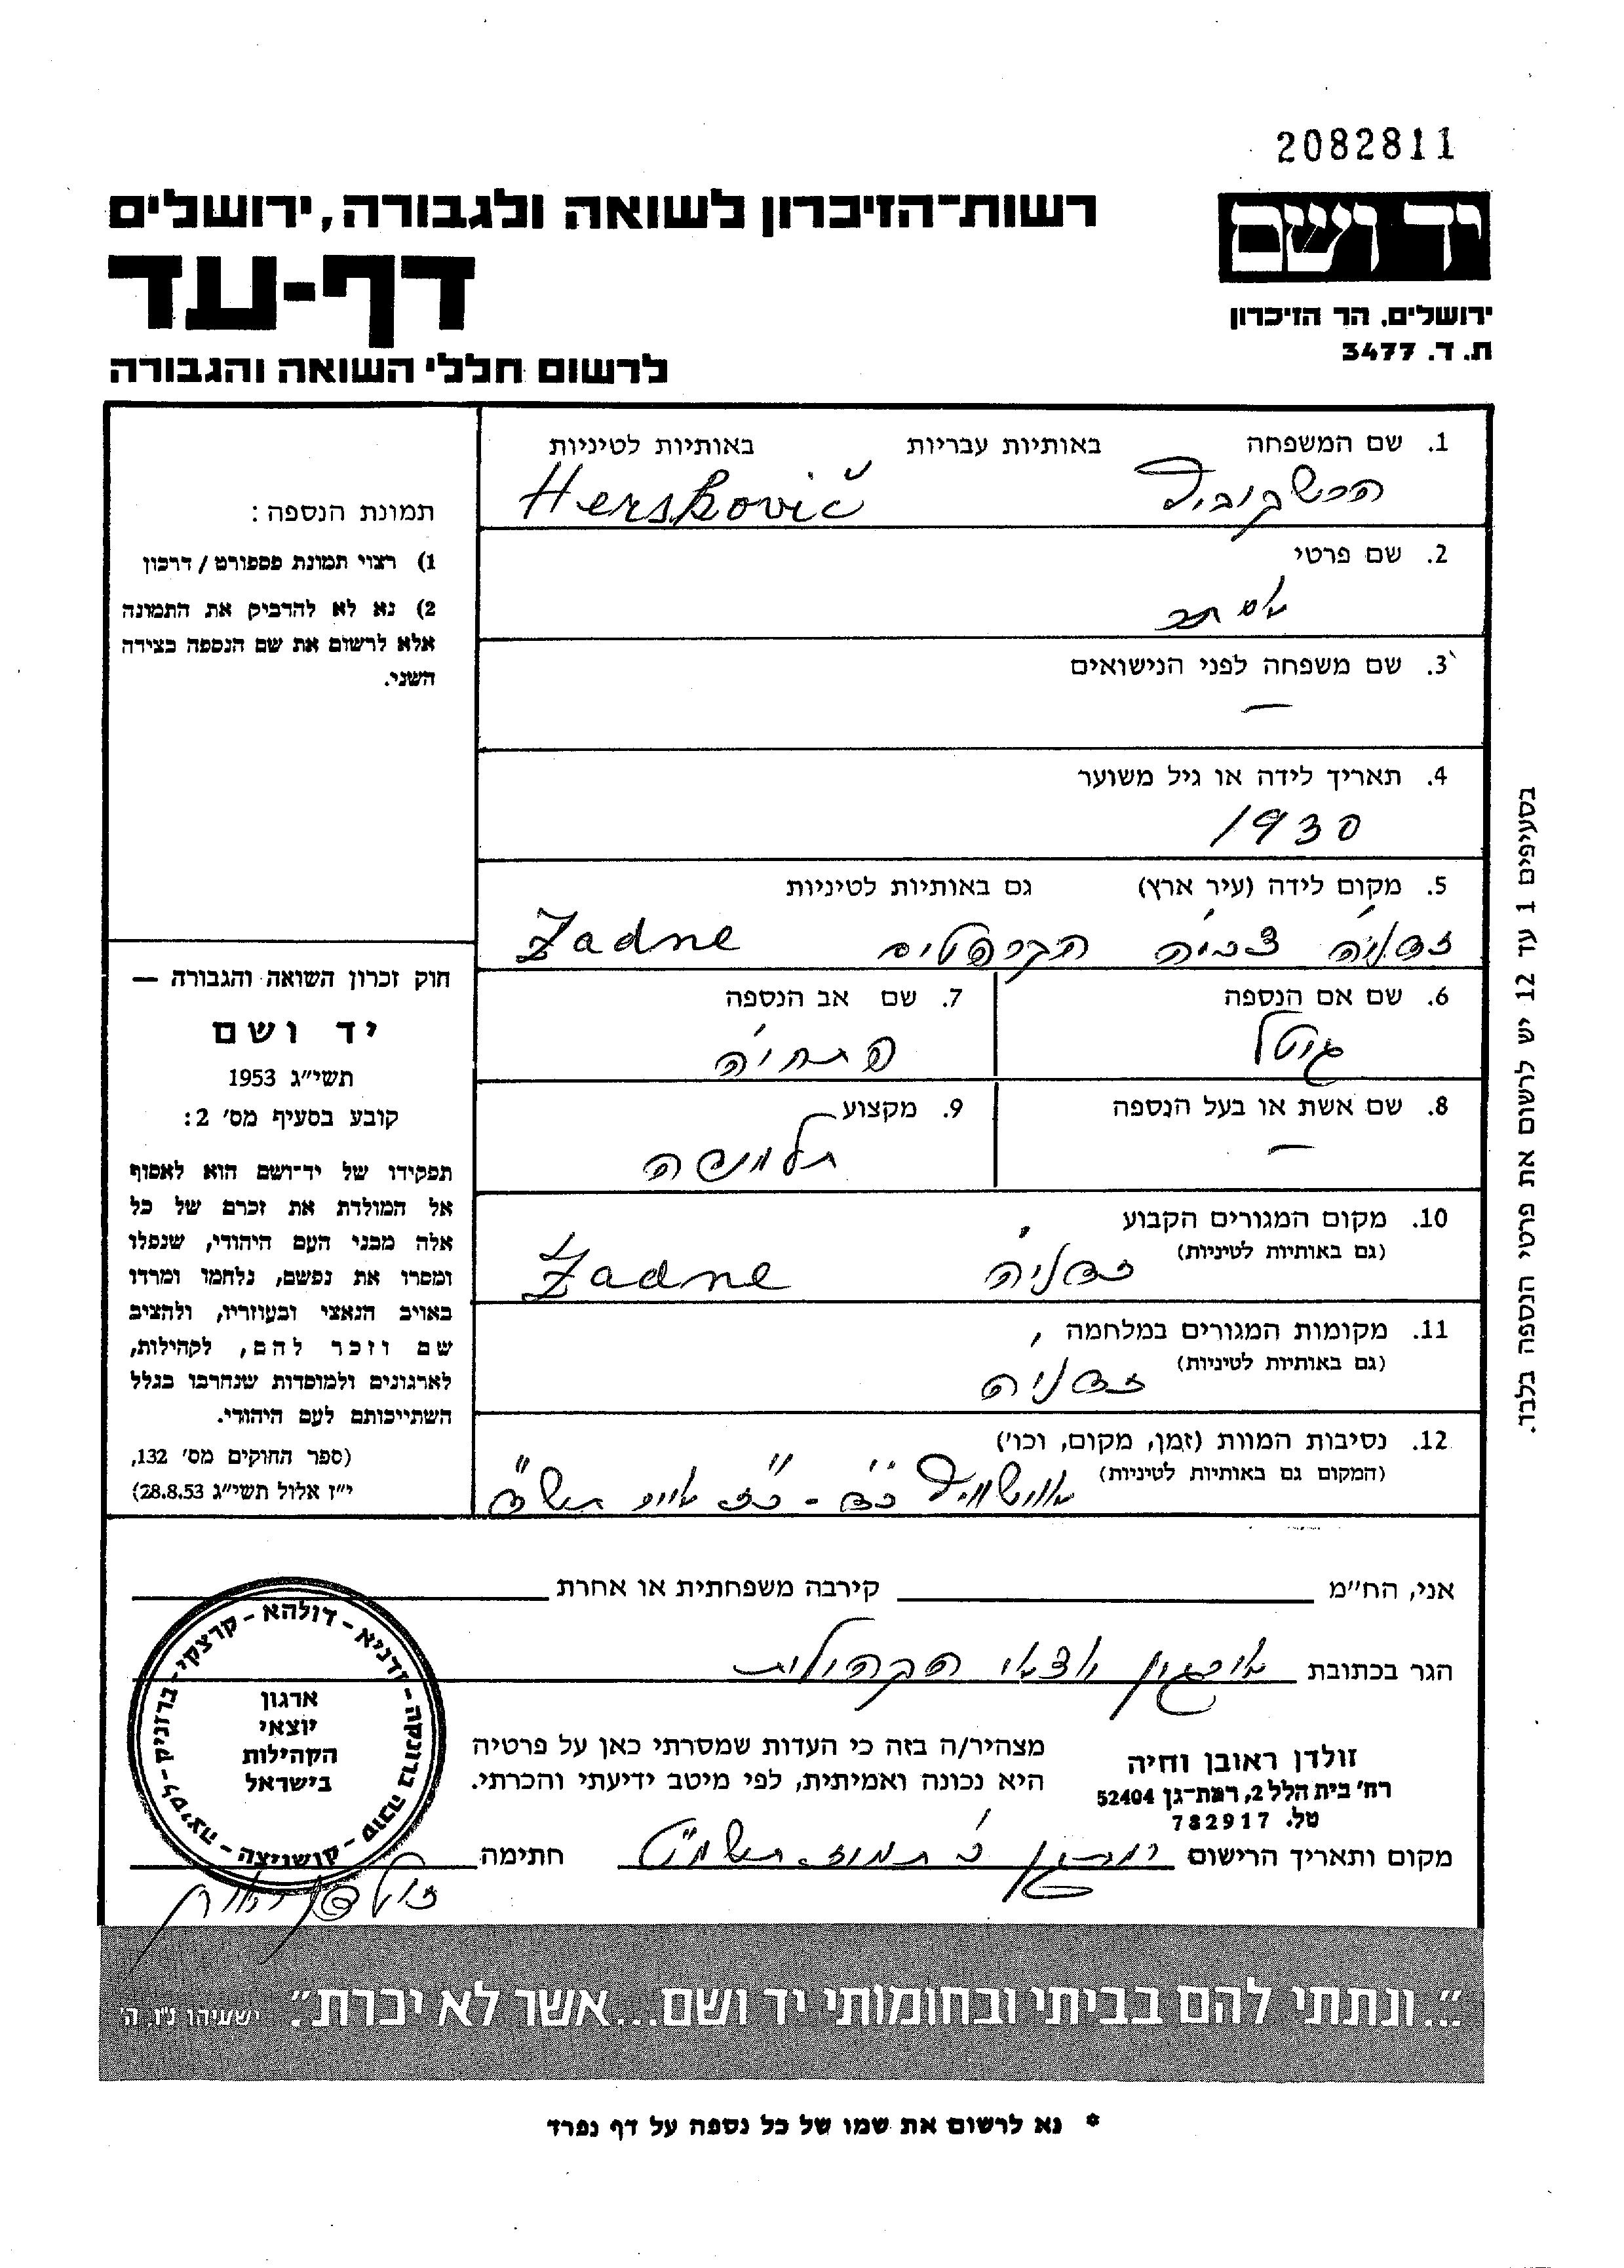 2082811
יד ושם
ירושלים, הר הזיכרון
ת. ד. 3477
רשות־הזיכרון לשואה ולגבורה, ירושלים
דף-עד
לרשום חללי השואה והגבורה
1. שם המשפחה באותיות עבריות באותיות לטיניות
הרשקוביץ Herskovič
2. שם פרטי
אסתר
3. שם משפחה לפני הנישואים
—
4. תאריך לידה או גיל משוער
1930
5. מקום לידה (עיר ארץ) גם באותיות לטיניות
זדניה צ'כיה הקרפטים Zadne
6. שם אם הנספה 7. שם אב הנספה
גיטל פתחיה
8. שם אשת או בעל הנספה 9. מקצוע
— תלמידה
10. מקום המגורים הקבוע
(גם באותיות לטיניות)
זדניה Zadne
11. מקומות המגורים במלחמה
(גם באותיות לטיניות)
זדניה
12. נסיבות המוות (זמן, מקום, וכו')
(המקום גם באותיות לטיניות)
אושוויץ כ"ד - כ"ז אייר תש"ד
תמונת הנספה:
1) רצוי תמונת פספורט / דרכון
2) נא לא להדביק את התמונה
אלא לרשום את שם הנספה בצידה
השני.
חוק זכרון השואה והגבורה —
יד ושם
תשי"ג 1953
קובע בסעיף מס' 2:
תפקידו של יד-ושם הוא לאסוף
אל המולדת את זכרם של כל
אלה מבני העם היהודי, שנפלו
ומסרו את נפשם, נלחמו ומרדו
באויב הנאצי ובעוזריו, ולהציב
שם וזכר להם, לקהילות,
לארגונים ולמוסדות שנחרבו בגלל
השתייכותם לעם היהודי.
(ספר החוקים מס' 132,
י"ז אלול תשי"ג 28.8.53)
בסעיפים 1 עד 12 יש לרשום את פרטי הנספה בלבד.
אני, הח"מ קירבה משפחתית או אחרת
הגר בכתובת ארגון יוצאי הקהילות
זולדן ראובן וחיה
רח' בית הלל 2, רמת-גן 52404
טל. 782917
מצהיר/ה בזה כי העדות שמסרתי כאן על פרטיה
היא נכונה ואמיתית, לפי מיטב ידיעתי והכרתי.
מקום ותאריך הרישום רמת גן י' תמוז תשמ"ט חתימה
זולדן ראובן
זדניא - דולהא - קרצקי - ברזניק - לסיצה - הצה - קושניצה - סוכה ברונקה
ארגון
יוצאי
הקהילות
בישראל
"...ונתתי להם בביתי ובחומותי יד ושם...אשר לא יכרת". ישעיהו נ"ו, ה'
* נא לרשום את שמו של כל נספה על דף נפרד